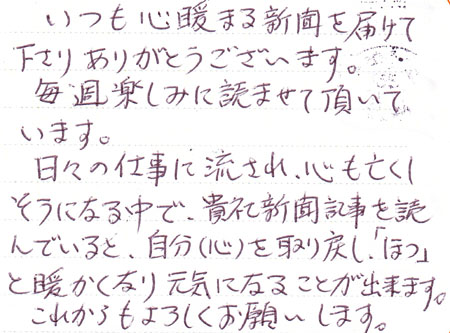 いつも心暖まる新聞を届けて
下さりありがとうございます。
毎週楽しみに読ませて頂いて
います。
日々の仕事に流され、心も亡くし
そうになる中で、貴社新聞記事を読
んでいると、自分(心)を取り戻し、「ほっ」
と暖かくなり元気になることが出来ます。
これからもよろしくお願いします。